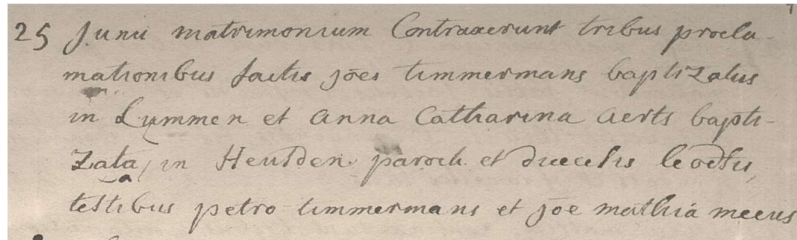 25 Junii matrimonium Contraxerunt tribus procla-
mationibus factis joēs timmermans baptizatus
in Lummen et Anna Catharina Aerts bapti-
zata in Heusden paroch et diœcesis leodiēs,
testibus petro timmermans et jōe mathiâ meeus